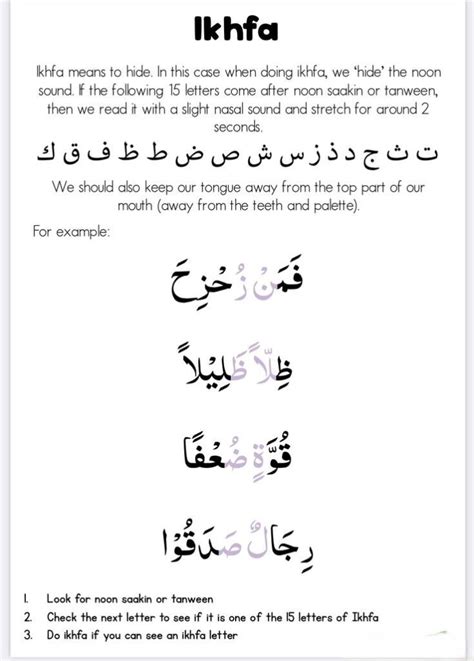 Ikhfa
Ikhfa means to hide. In this case when doing ikhfa, we 'hide' the noon
sound. If the following 15 letters come after noon saakin or tanween,
then we read it with a slight nasal sound and stretch for around 2
seconds.
ت ث ج د ذ ز س ش ص ض ط ظ ف ق ك
We should also keep our tongue away from the top part of our
mouth (away from the teeth and palette).
For example:
فَمَنْ زُحْزِحَ
ظِلّاً ظَلِيْلاً
قُوَّةٍ ضُعْفًا
رِجَالٌ صَدَقُوْا
1. Look for noon saakin or tanween
2. Check the next letter to see if it is one of the 15 letters of Ikhfa
3. Do ikhfa if you can see an ikhfa letter